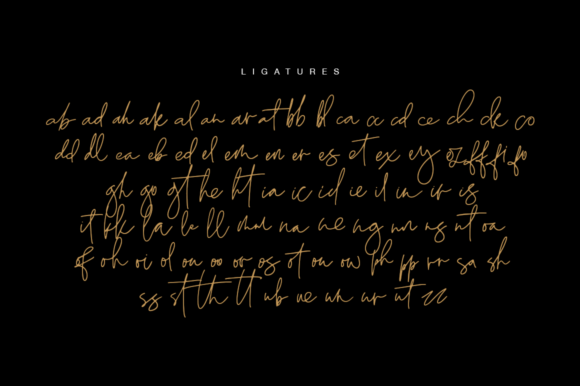 LIGATURES
ab ad ah ak al an ar at bb bl ca cc cd ce ch ck co
dd dl ea eb ed el em en er es et ex ey ez ff fi fo
gh go gt he ht ia ic id ie il in ir is
it kk la le ll mm na ne ng nn ns nt oa
of oh oi ol on oo or os ot ou ow ph pp rr sa sh
ss st th tt ub ue un ur ut zz